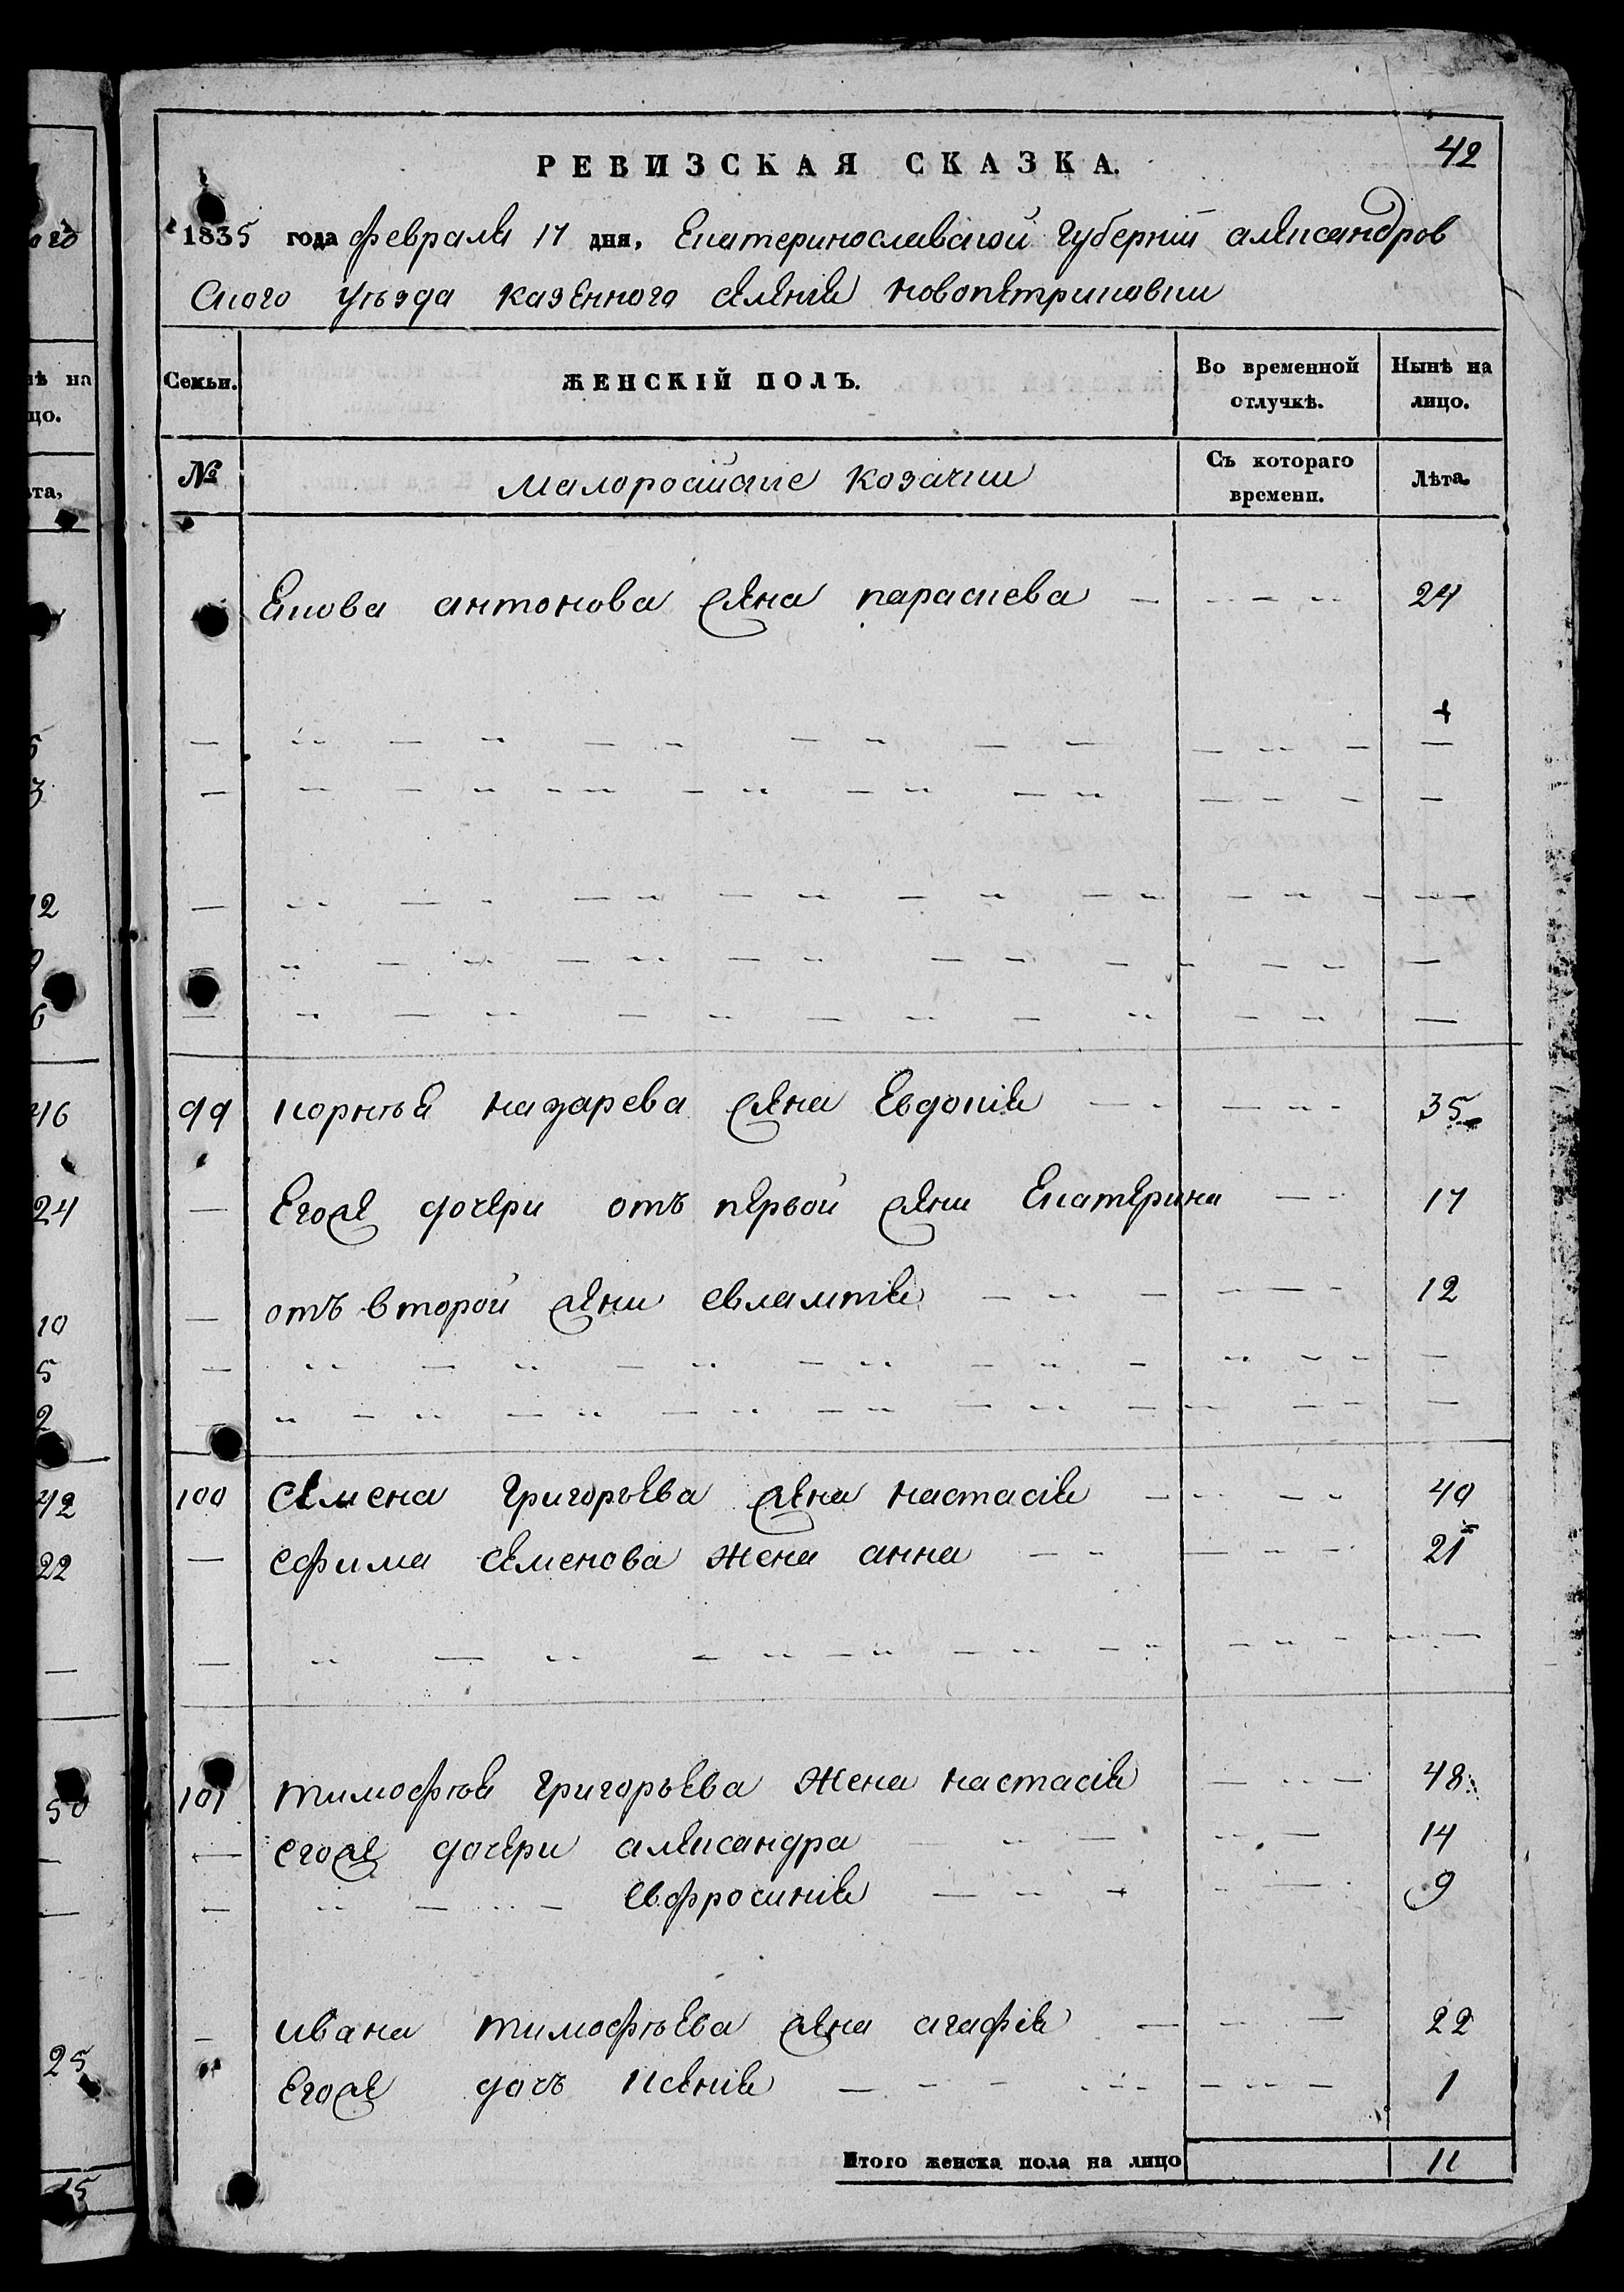 42
РЕВИЗСКАЯ СКАЗКА.
1835 года февраля 17 дня, Екатеринославской Губернiи александров
Ского уѣзда казенного селенiя новопетриковки
Семьи.
ЖЕНСКІЙ ПОЛЪ.
Во временной отлучкѣ.
Нынѣ на лицо.
№
малоросiйскiе козачки
Съ котораго времени.
Лѣта.
Якова антонова жена параскева 24
99 корнѣя назарева жена Евдокiя 35
Егоже дочери отъ первой жени Екатерина 17
отъ второй жени евлампiя 12
100 семена Григорьева жена настасiя 40
ефима семенова жена анна 21
101 тимофѣя григорьева жена настасiя 48
егоже дочери александра 14
евфросинiя 9
ивана тимофѣева жена агафiя 22
Егоже дочь ксенiя 1
Итого женска пола на лицо 11